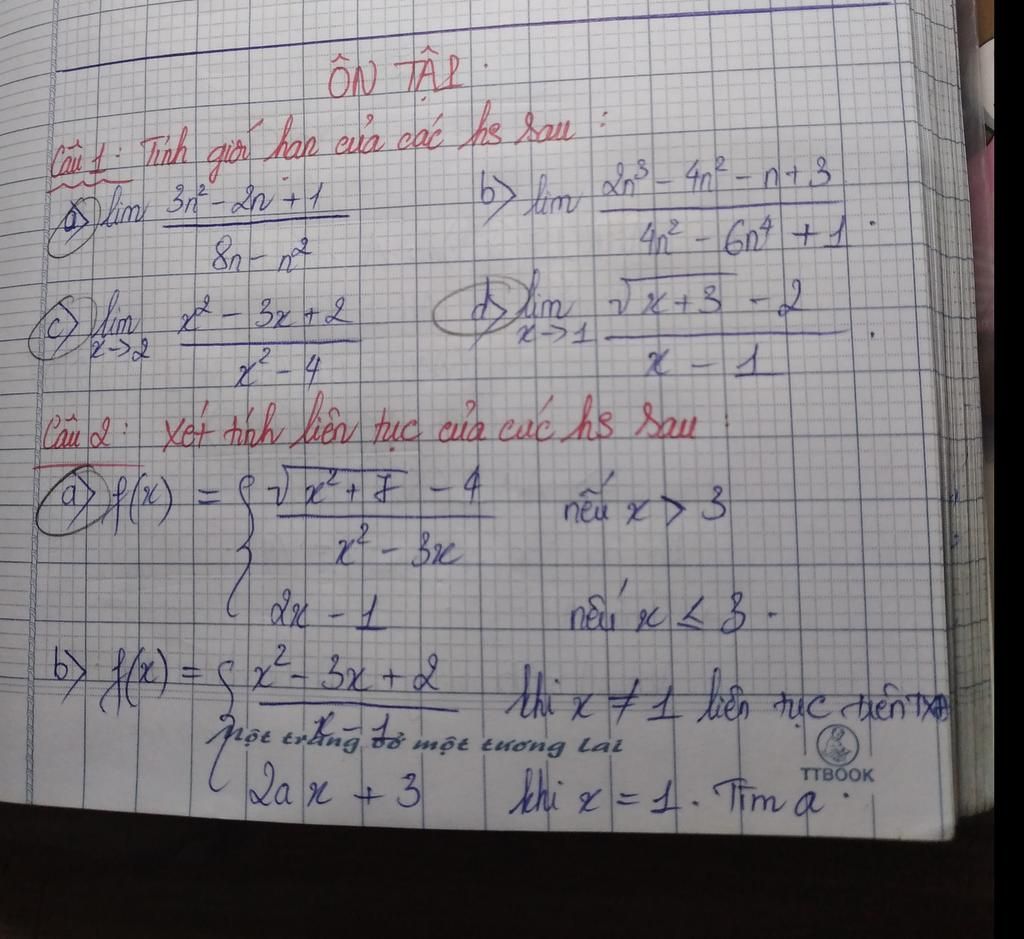 ÔN TẬP.
Câu 1: Tính giới hạn của các hs sau:
a) lim (3n² - 2n + 1)/(8n - n²) b) lim (2n³ - 4n² - n + 3)/(4n² - 6n⁴ + 1).
c) lim x→2 (x² - 3x + 2)/(x² - 4) d) lim x→1 (√(x+3) - 2)/(x - 1).
Câu 2: Xét tính liên tục của các hs sau:
a) f(x) = { (√(x² + 7) - 4)/(x² - 3x) nếu x > 3
2x - 1 nếu x ≤ 3.
b) f(x) = { (x² - 3x + 2)/(x - 1) khi x ≠ 1 liên tục trên TXĐ
Một trang vở một tương lai
TTBOOK
2ax + 3 khi x = 1. Tìm a.